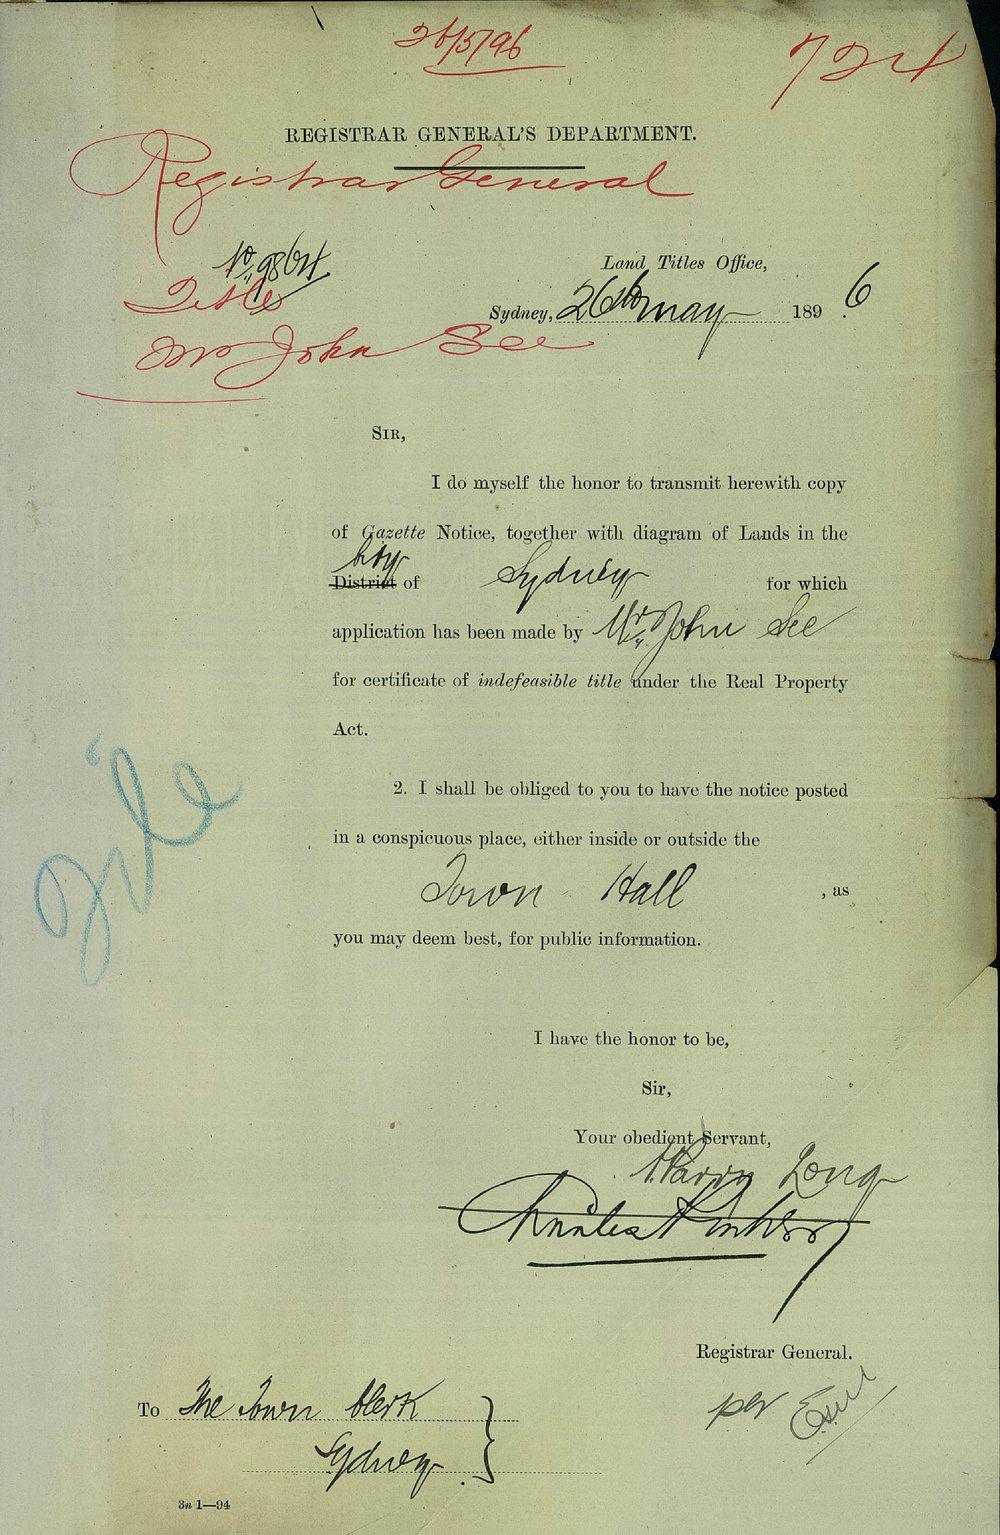 26/5/96
724
REGISTRAR GENERAL'S DEPARTMENT.
Registrar General
No. 9864
Land Titles Office,
Title
Sydney, 26th May 1896
Mr John See
SIR,
I do myself the honor to transmit herewith copy
of Gazette Notice, together with diagram of Lands in the
City
District of Sydney for which
application has been made by Mr. John See
for certificate of indefeasible title under the Real Property
Act.
2. I shall be obliged to you to have the notice posted
in a conspicuous place, either inside or outside the
File
Town Hall , as
you may deem best, for public information.
I have the honor to be,
Sir,
Your obedient Servant,
Long
Charles
Registrar General.
per
To The Town Clerk
Sydney.
3n 1—94